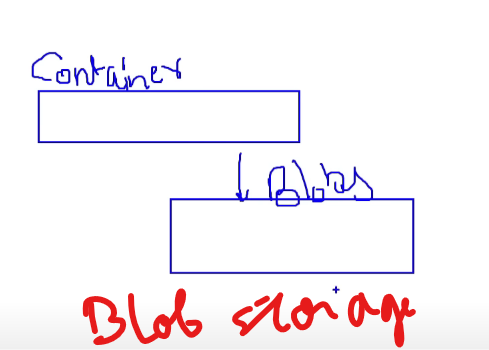 Container
Blobs
Blob storage